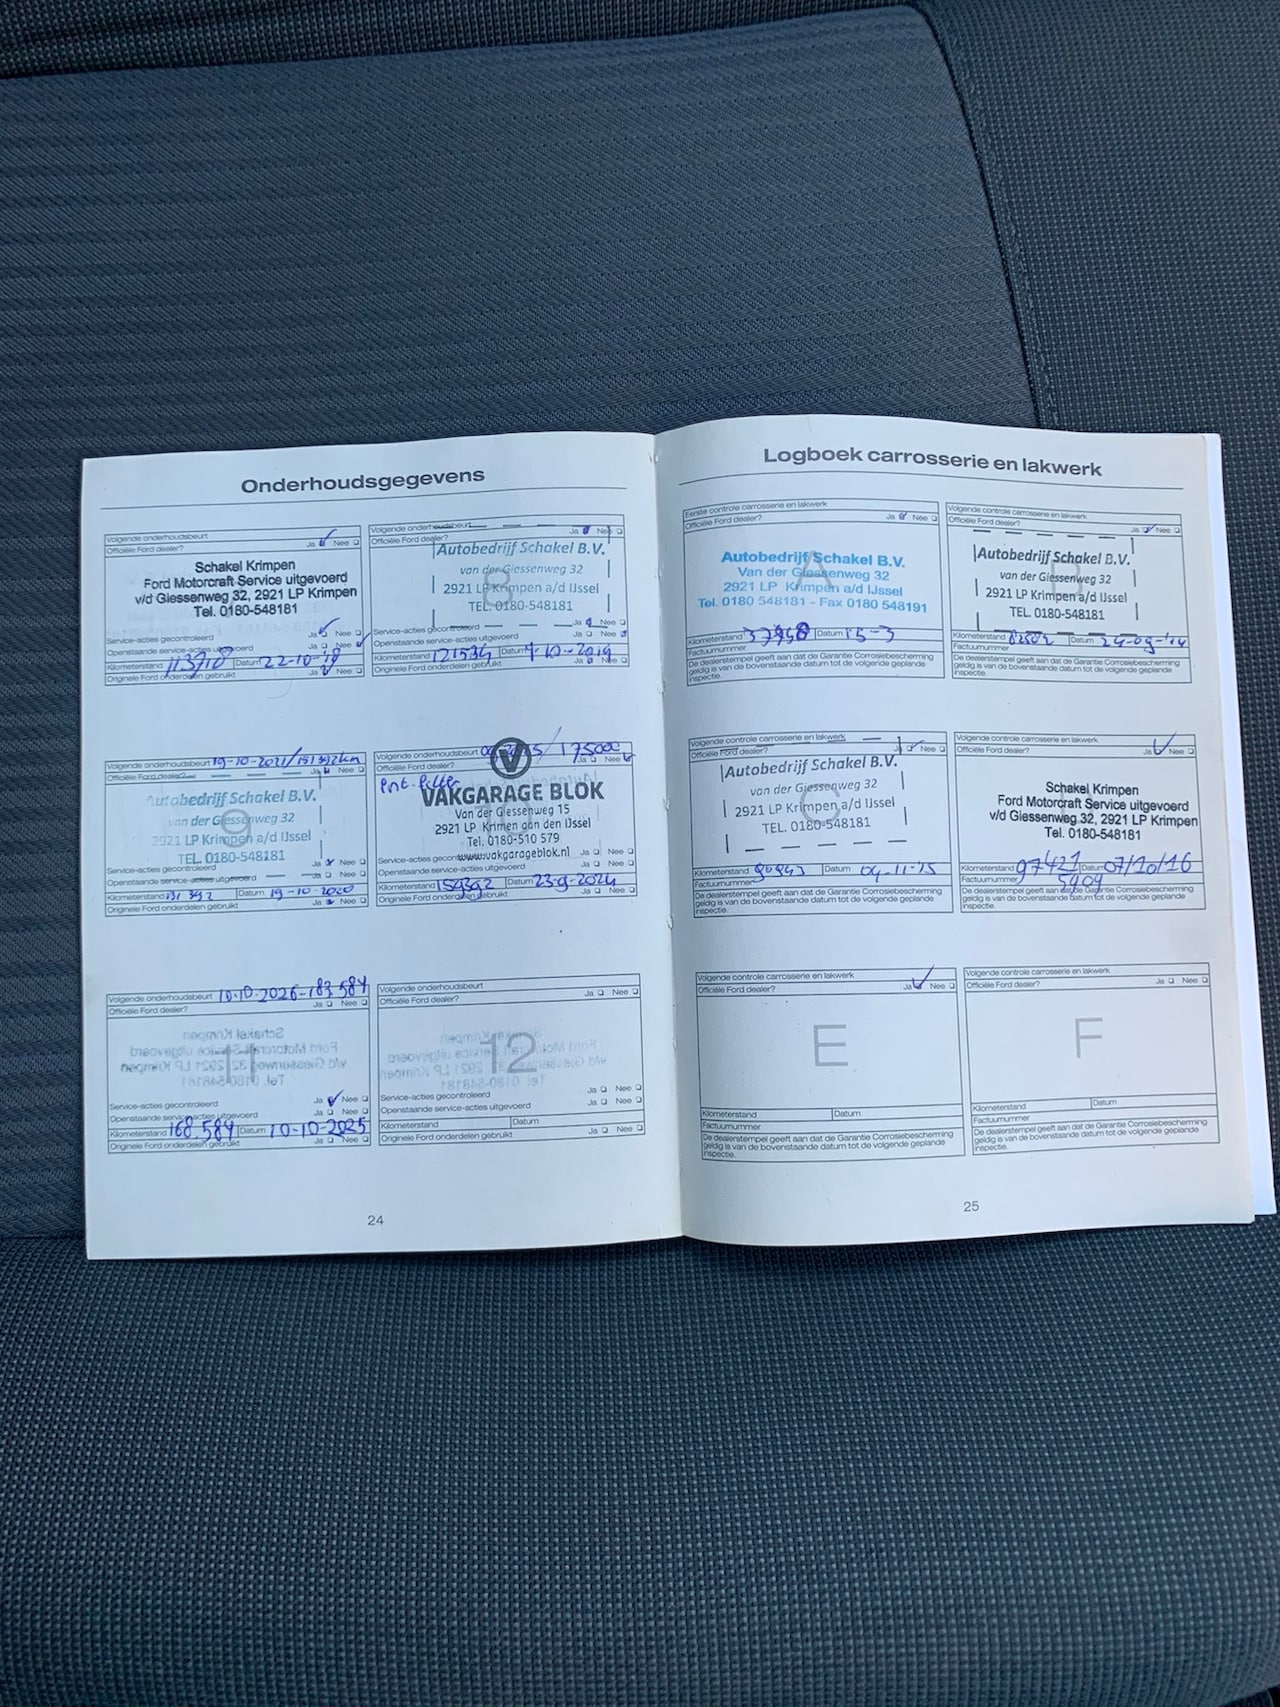 Onderhoudsgegevens
Volgende onderhoudsbeurt
Officiële Ford dealer? Ja Nee
Schakel Krimpen
Ford Motorcraft Service uitgevoerd
v/d Giessenweg 32, 2921 LP Krimpen
Tel. 0180-548181
Service-acties gecontroleerd Ja Nee
Openstaande service-acties uitgevoerd
Kilometerstand 113710 Datum 22-10-'18
Originele Ford onderdelen gebruikt Ja Nee
Volgende onderhoudsbeurt
Officiële Ford dealer? Ja Nee
8
Autobedrijf Schakel B.V.
van der Giessenweg 32
2921 LP Krimpen a/d IJssel
TEL. 0180-548181
Service-acties gecontroleerd Ja Nee
Openstaande service-acties uitgevoerd Ja Nee
Kilometerstand 121534 Datum -10-2019
Originele Ford onderdelen gebruikt Ja Nee
Volgende onderhoudsbeurt 19-10-2021/151392km
Officiële Ford dealer? Ja Nee
9
Autobedrijf Schakel B.V.
van der Giessenweg 32
2921 LP Krimpen a/d IJssel
TEL. 0180-548181
Service-acties gecontroleerd Ja Nee
Openstaande service-acties uitgevoerd
Kilometerstand 131 392 Datum 19-10-2020
Originele Ford onderdelen gebruikt Ja Nee
Volgende onderhoudsbeurt / 175000
Officiële Ford dealer? Ja Nee
VAKGARAGE BLOK
Van der Giessenweg 15
2921 LP Krimen aan den IJssel
Tel. 0180-510 579
www.vakgarageblok.nl
Service-acties gecontroleerd Ja Nee
Openstaande service-acties uitgevoerd Ja Nee
Kilometerstand 159392 Datum 23-9-2024
Originele Ford onderdelen gebruikt Ja Nee
Volgende onderhoudsbeurt 10-10-2026-183.584
Officiële Ford dealer? Ja Nee
11
Service-acties gecontroleerd Ja Nee
Openstaande service-acties uitgevoerd Ja Nee
Kilometerstand 168.584 Datum 10-10-2025
Originele Ford onderdelen gebruikt Ja Nee
Volgende onderhoudsbeurt
Officiële Ford dealer? Ja Nee
12
Service-acties gecontroleerd Ja Nee
Openstaande service-acties uitgevoerd Ja Nee
Kilometerstand Datum
Originele Ford onderdelen gebruikt Ja Nee
24
Logboek carrosserie en lakwerk
Eerste controle carrosserie en lakwerk
Officiële Ford dealer? Ja Nee
A
Autobedrijf Schakel B.V.
Van der Giessenweg 32
2921 LP Krimpen a/d IJssel
Tel. 0180 548181 - Fax 0180 548191
Kilometerstand 37958 Datum 15-3
Factuurnummer
De dealerstempel geeft aan dat de Garantie Corrosiebescherming
geldig is van bovenstaande datum tot de volgende geplande
inspectie.
Volgende controle carrosserie en lakwerk
Officiële Ford dealer? Ja Nee
Autobedrijf Schakel B.V.
van der Giessenweg 32
2921 LP Krimpen a/d IJssel
TEL. 0180-548181
Kilometerstand Datum 24-09-'14
Factuurnummer
De dealerstempel geeft aan dat de Garantie Corrosiebescherming
geldig is van bovenstaande datum tot de volgende geplande
inspectie.
Volgende controle carrosserie en lakwerk
Officiële Ford dealer? Ja Nee
C
Autobedrijf Schakel B.V.
van der Giessenweg 32
2921 LP Krimpen a/d IJssel
TEL. 0180-548181
Kilometerstand 90943 Datum 04-11-'15
Factuurnummer
De dealerstempel geeft aan dat de Garantie Corrosiebescherming
geldig is van bovenstaande datum tot de volgende geplande
inspectie.
Volgende controle carrosserie en lakwerk
Officiële Ford dealer? Ja Nee
Schakel Krimpen
Ford Motorcraft Service uitgevoerd
v/d Giessenweg 32, 2921 LP Krimpen
Tel. 0180-548181
Kilometerstand 97421 Datum 07/10/16
Factuurnummer 5909
De dealerstempel geeft aan dat de Garantie Corrosiebescherming
geldig is van bovenstaande datum tot de volgende geplande
inspectie.
Volgende controle carrosserie en lakwerk
Officiële Ford dealer? Ja Nee
E
Kilometerstand Datum
Factuurnummer
De dealerstempel geeft aan dat de Garantie Corrosiebescherming
geldig is van bovenstaande datum tot de volgende geplande
inspectie.
Volgende controle carrosserie en lakwerk
Officiële Ford dealer? Ja Nee
F
Kilometerstand Datum
Factuurnummer
De dealerstempel geeft aan dat de Garantie Corrosiebescherming
geldig is van bovenstaande datum tot de volgende geplande
inspectie.
25